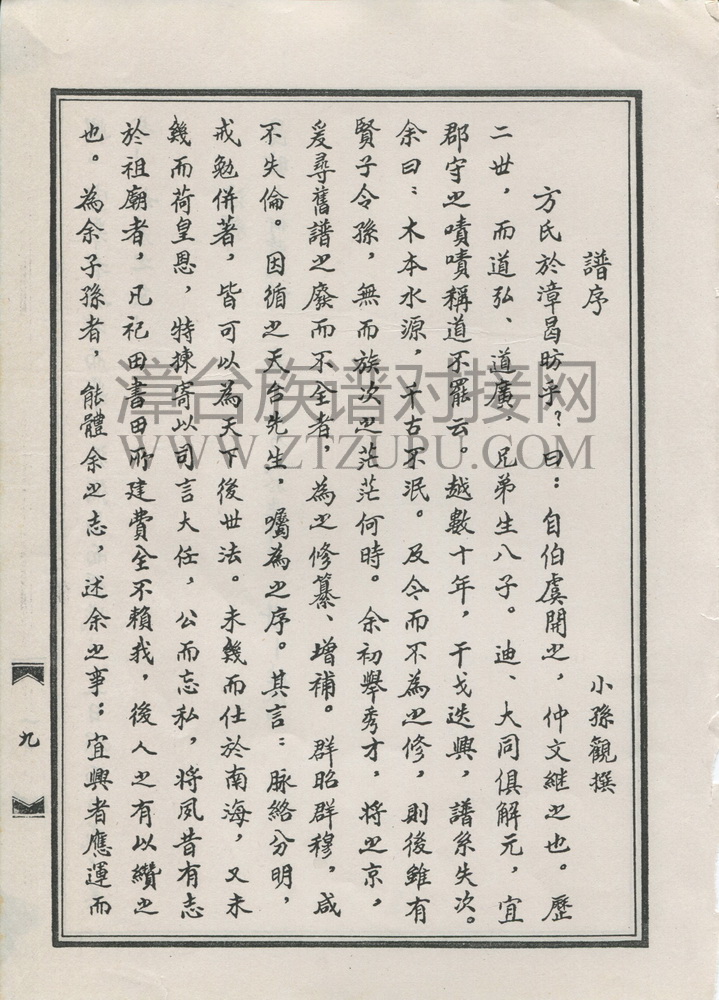 譜序
小孫觀撰
方氏於漳曷昉乎？曰：自伯虞開之，仲文繼之也。歷
二世，而道弘、道廣，兄弟生八子。迪、大同俱解元，宜
郡守之嘖嘖稱道不罷云。越數十年，干戈迭興，譜系失次。
余曰：木本水源，千古不泯。及今而不為之修，則後雖有
賢子令孫，無而族次之茫茫何時。余初舉秀才，將之京，
爰尋舊譜之廢而不全者，為之修纂、增補。群昭群穆，咸
不失倫。因循之天台先生，囑為之序。其言：脉絡分明，
戒勉併著，皆可以為天下後世法。未幾而仕於南海，又未
幾而荷皇恩，特揀寄以司言大任，公而忘私，將夙昔有志
於祖廟者，凡祀田書田所建費全不賴我，後人之有以纘之
也。為余子孫者，能體余之志，述余之事；宜興者應運而
九
漳台族谱对接网
WWW.ZTZUPU.COM